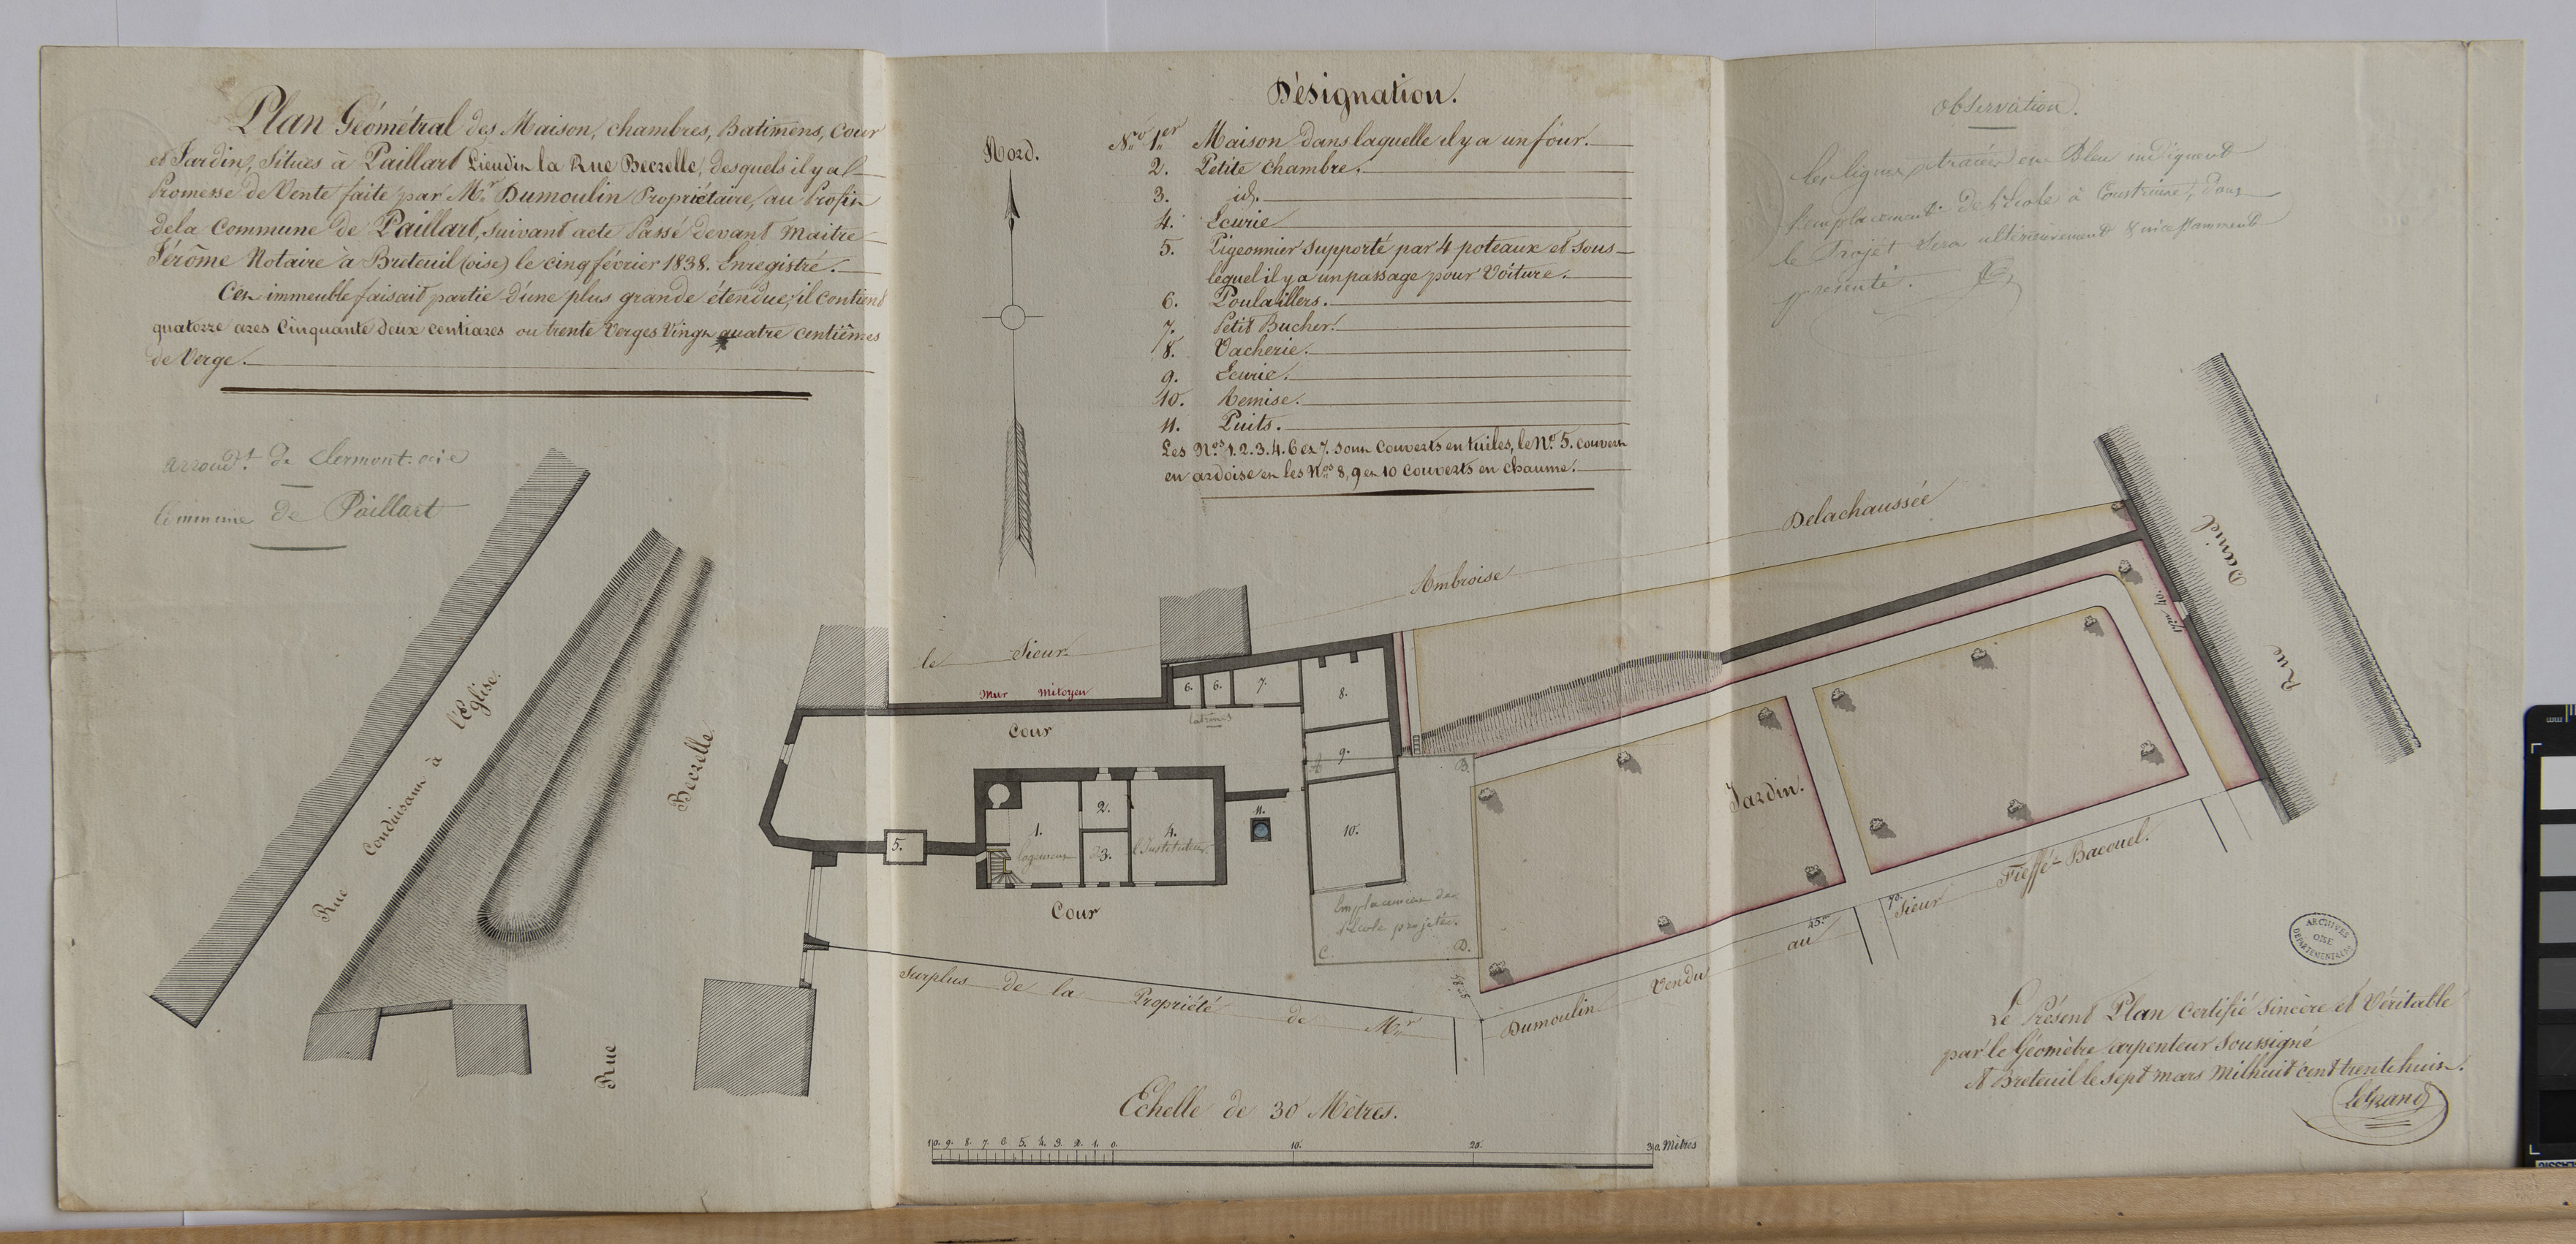 Plan Géométral des Maison, chambres, Batimens, Cour
et Jardin, Situés à Paillart Lieudit la Rue Becrelle, desquels il y a
Promesse de Vente faite par Mr. Dumoulin Propriétaire, au Profit
de la Commune de Paillart, suivant acte Passé devant Maitre
Jérôme Notaire à Breteuil (oise) le cinq février 1838. Enregistré.
Cet immeuble faisait partie d'une plus grande étendue; il contient
quatorze ares Cinquante deux centiares ou trente Verges Vingt quatre centièmes
de Verge.
arrond.t de Clermont. oise
Commune de Paillart
Désignation.
Nº 1er Maison dans laquelle il y a un four.
2. Petite chambre.
3. id.
4. Ecurie
5. Pigeonnier supporté par 4 poteaux et sous
lequel il y a un passage pour Voiture.
6. Poulaillers.
7. Petit Bucher.
8. Vacherie.
9. Ecurie.
10. Remise.
11. Puits.
Les Nos 1. 2. 3. 4. 6 et 7. sont Couverts en tuiles, le Nº 5. couvert
en ardoise et les Nos 8, 9 et 10 couverts en chaume.
Nord.
Observation.
les lignes tracées en Bleu indiquent
l'emplacement de l'école à Construire, dont
le Projet sera ultérieurement & incessamment
présenté.
Rue Conduisant à l'Eglise.
Rue Becrelle
le Sieur Ambroise Delachaussée
Mur mitoyen
Cour
latrines
6. 6. 7. 8.
9.
10.
11.
1. 2. 3. 4.
logement de l'Instituteur
5.
Cour
B.
Emplacement de
l'école projetée.
C. D.
Jardin.
Rue Daniel
17m 40.
Surplus de la Propriété de Mr. Dumoulin Vendu au Sieur Fieffé-Bacouel.
Echelle de 30 Mètres.
10. 9. 8. 7. 6. 5. 4. 3. 2. 1. 0. 10. 20. 30. Mètres
ARCHIVES
OISE
DEPARTEMENTALES
Le Présent Plan Certifié Sincère et Véritable
par le Géomètre arpenteur Soussigné
A Breteuil le sept mars Mil huit cent trente huit.
LeGrand